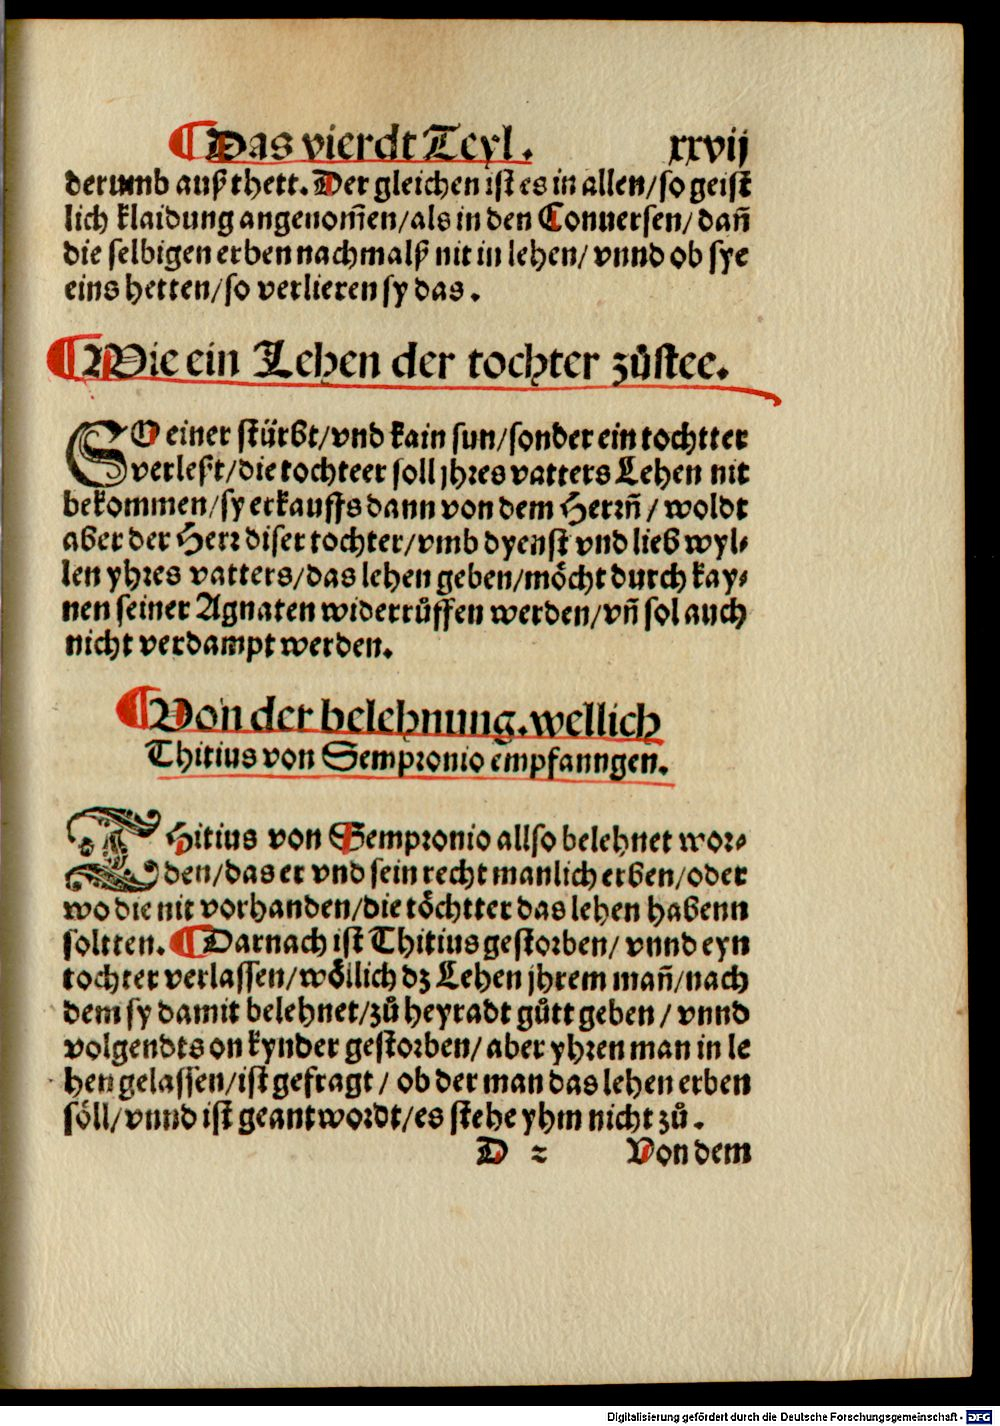 ¶Das vierdt Teyl. xxvij
derumb auß thett. Der gleichen ist es in allen/so geist
lich klaidung angenom̃en/als in den Conuersen/dañ
die selbigen erben nachmalß nit in lehen/vnnd ob sye
eins hetten/so verlieren sy das.
¶Wie ein Lehen der tochter zůstee.
SO einer stürbt/vnd kain sun/sonder ein tochtter
verleßt/die tochteer soll jhres vatters Lehen nit
bekommen/sy erkauffs dann von dem Herrñ/woldt
aber der Herr diser tochter/vmb dyenst vnd lieb wyl⸗
len yhres vatters/das lehen geben/möcht durch kay⸗
nen seiner Agnaten widerrůffen werden/vñ sol auch
nicht verdampt werden.
¶Von der belehnung.wellich
Thitius von Sempronio empfanngen.
THitius von Sempronio allso belehnet wor⸗
den/das er vnd sein recht manlich erben/oder
wo die nit vorhanden/die töchtter das lehen habenn
soltten. ¶Darnach ist Thitius gestorben/vnnd eyn
tochter verlassen/wöllich dz Lehen jhrem mañ/nach
dem sy damit belehnet/zů heyradt gůtt geben/vnnd
volgendts on kynder gestorben/aber yhren man in le
hen gelassen/ist gefragt/ob der man das lehen erben
söll/vnnd ist geantwordt/es stehe yhm nicht zů.
D 2 Von dem
Digitalisierung gefördert durch die Deutsche Forschungsgemeinschaft - DFG